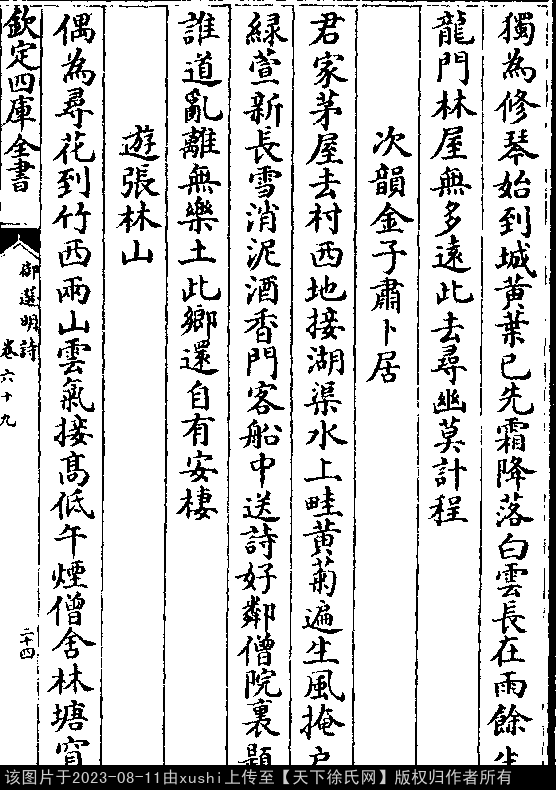 獨為修琴始到城黄葉已先霜降落白雲長在雨餘生
龍門林屋無多逺此去尋幽莫計程
次韻金子肅卜居
君家茅屋去村西地接湖渠水上畦黄菊遍生風掩
緑萱新長雪消泥酒香門客船中送詩好鄰僧院裏題
誰道亂離無樂土此鄉還自有安棲
遊張林山
偶為尋花到竹西兩山雲氣接髙低午煙僧舍林塘
欽定四庫全書
御選明詩
卷六十九
二十四
该图片于2023-08-11由xushi上传至【天下徐氏网】版权归作者所有